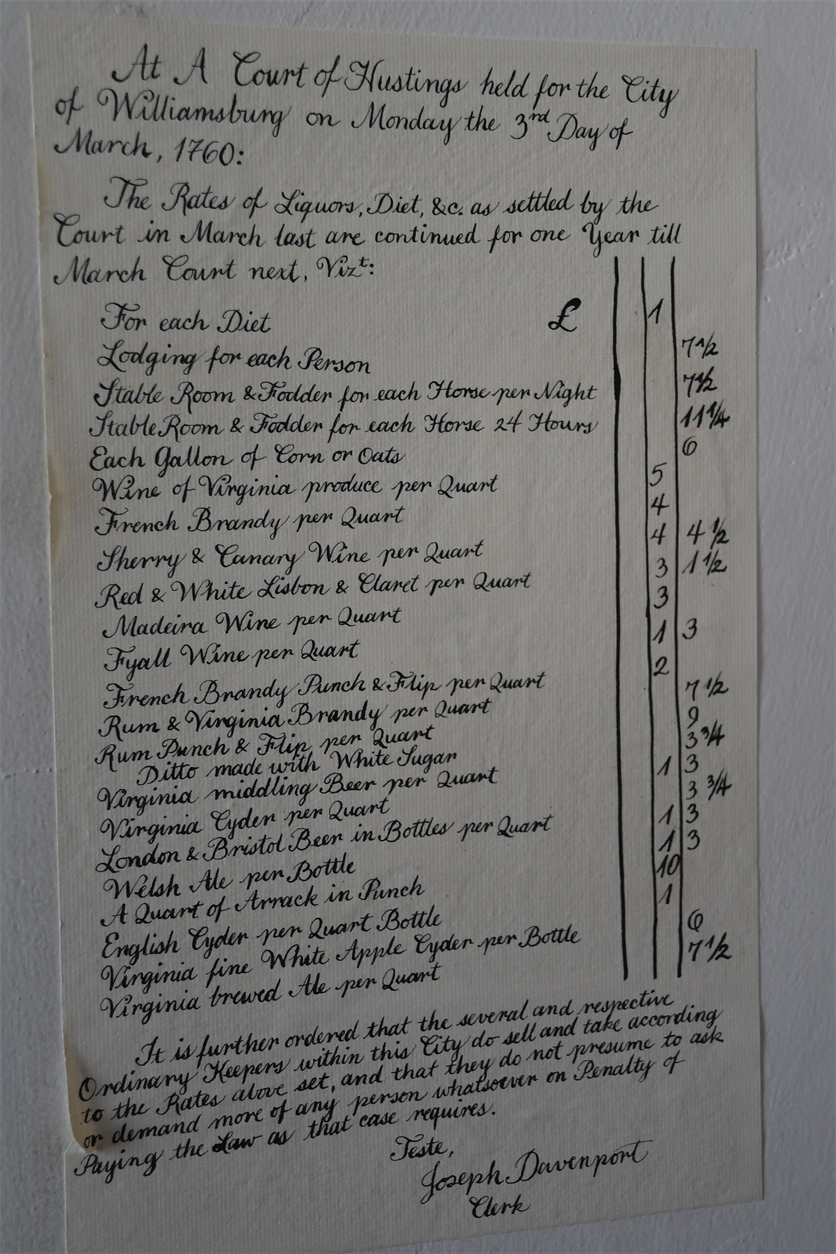 At A Court of Hustings held for the City
of Williamsburg on Monday the 3rd Day of
March, 1760:
The Rates of Liquors, Diet, &c. as settled by the
Court in March last are continued for one Year till
March Court next, Vizt:
For each Diet £ 1
Lodging for each Person 7 1/2
Stable Room & Fodder for each Horse per Night 7 1/2
Stable Room & Fodder for each Horse 24 Hours 11 1/4
Each Gallon of Corn or Oats 6
Wine of Virginia produce per Quart 5
French Brandy per Quart 4
Sherry & Canary Wine per Quart 4 4 1/2
Red & White Lisbon & Claret per Quart 3 1 1/2
Madeira Wine per Quart 3
Fyall Wine per Quart 1 3
French Brandy Punch & Flip per Quart 2
Rum & Virginia Brandy per Quart 7 1/2
Rum Punch & Flip per Quart 9
Ditto made with White Sugar 3 3/4
Virginia middling Beer per Quart 1 3
Virginia Cyder per Quart 3 3/4
London & Bristol Beer in Bottles per Quart 1 3
Welsh Ale per Bottle 1 3
A Quart of Arrack in Punch 10
English Cyder per Quart Bottle 1
Virginia fine White Apple Cyder per Bottle 6
Virginia brewed Ale per Quart 7 1/2
It is further ordered that the several and respective
Ordinary Keepers within this City do sell and take according
to the Rates above set, and that they do not presume to ask
or demand more of any person whatsoever on Penalty of
Paying the Law as that case requires.
Teste,
Joseph Davenport
Clerk